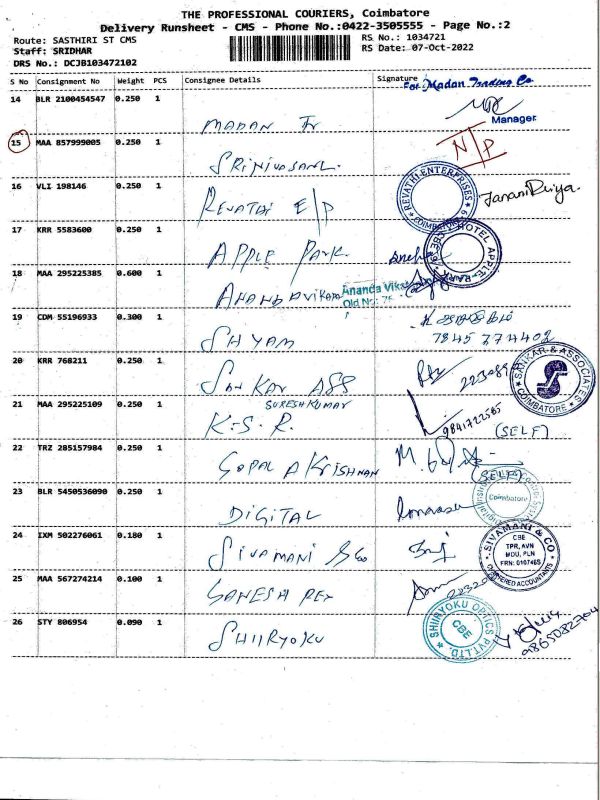 THE PROFESSIONAL COURIERS, Coimbatore
Delivery Runsheet - CMS - Phone No.:0422-3505555 - Page No.:2
Route: SASTHIRI ST CMS
RS No.: 1034721
Staff: SRIDHAR
RS Date: 07-Oct-2022
DRS No.: DCJB103472102
S No Consignment No Weight PCS Consignee Details Signature
For Madan Trading Co
14 BLR 2100454547 0.250 1 MADAN Tr
Manager
15 MAA 857999005 0.250 1 SRINIVASAN. N/P
16 VLI 198146 0.250 1 REVATHI E/P
REVATHI ENTERPRISES COIMBATORE
17 KRR 5583600 0.250 1 APPLE PARK
HOTEL APPLE PARK
18 MAA 295225385 0.600 1 ANANDAVIKATA
Ananda Vika
Old No: 75
19 CDM 55196933 0.300 1 SHYAM
7845 774402
20 KRR 768211 0.250 1 SANKAR ASS
SANKAR & ASSOCIATES COIMBATORE
21 MAA 295225109 0.250 1 K.S.R. SURESHKUMAR
9841722585
(SELF)
22 TRZ 285157984 0.250 1 GOPALAKRISHNAN
(SELF)
23 BLR 5450536090 0.250 1 DIGITAL
Coimbatore
24 IXM 502276061 0.180 1 SIVAMANI & Co
SIVAMANI & CO
CBE
TPR, AVN
MDU, PLN
FRN: 010746S
CHARTERED ACCOUNTANTS
25 MAA 567274214 0.100 1 GANESH REX
26 STY 806954 0.090 1 SHIIRYOKU
SHIIRYOKU OPTICS PVT.LTD. CBE
9865082704